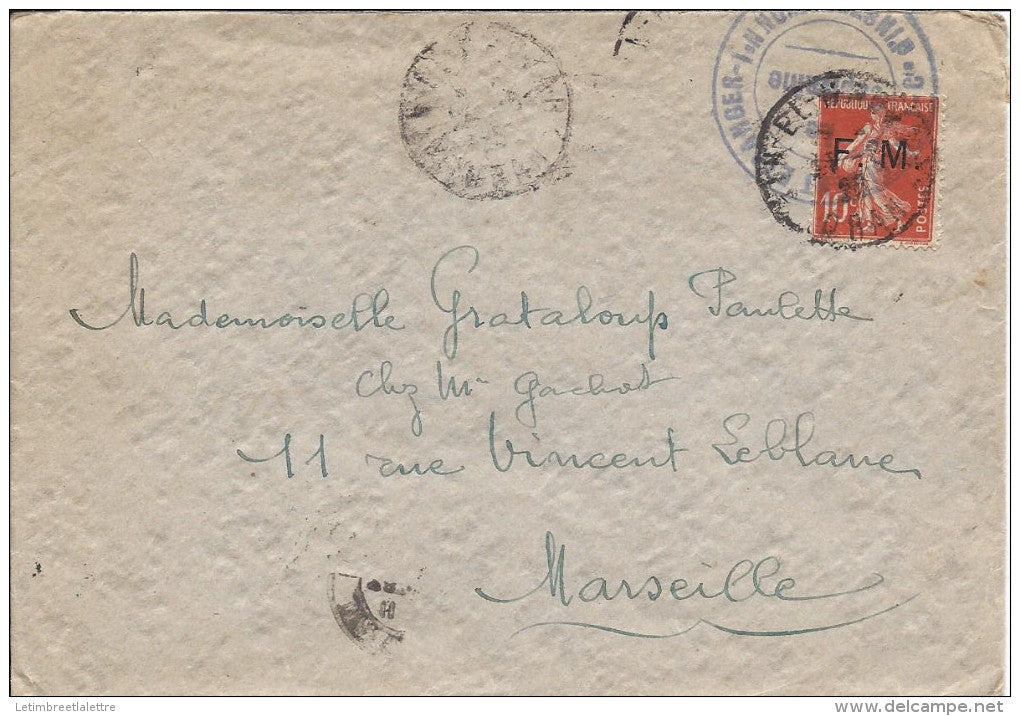 REPUBLIQUE FRANÇAISE
F. M
10
POSTES
Mademoiselle Grataloup Paulette
chez Mr Gachot
11 rue Vincent Leblanc
Marseille
Letimbreetlalettre
delcampe.net